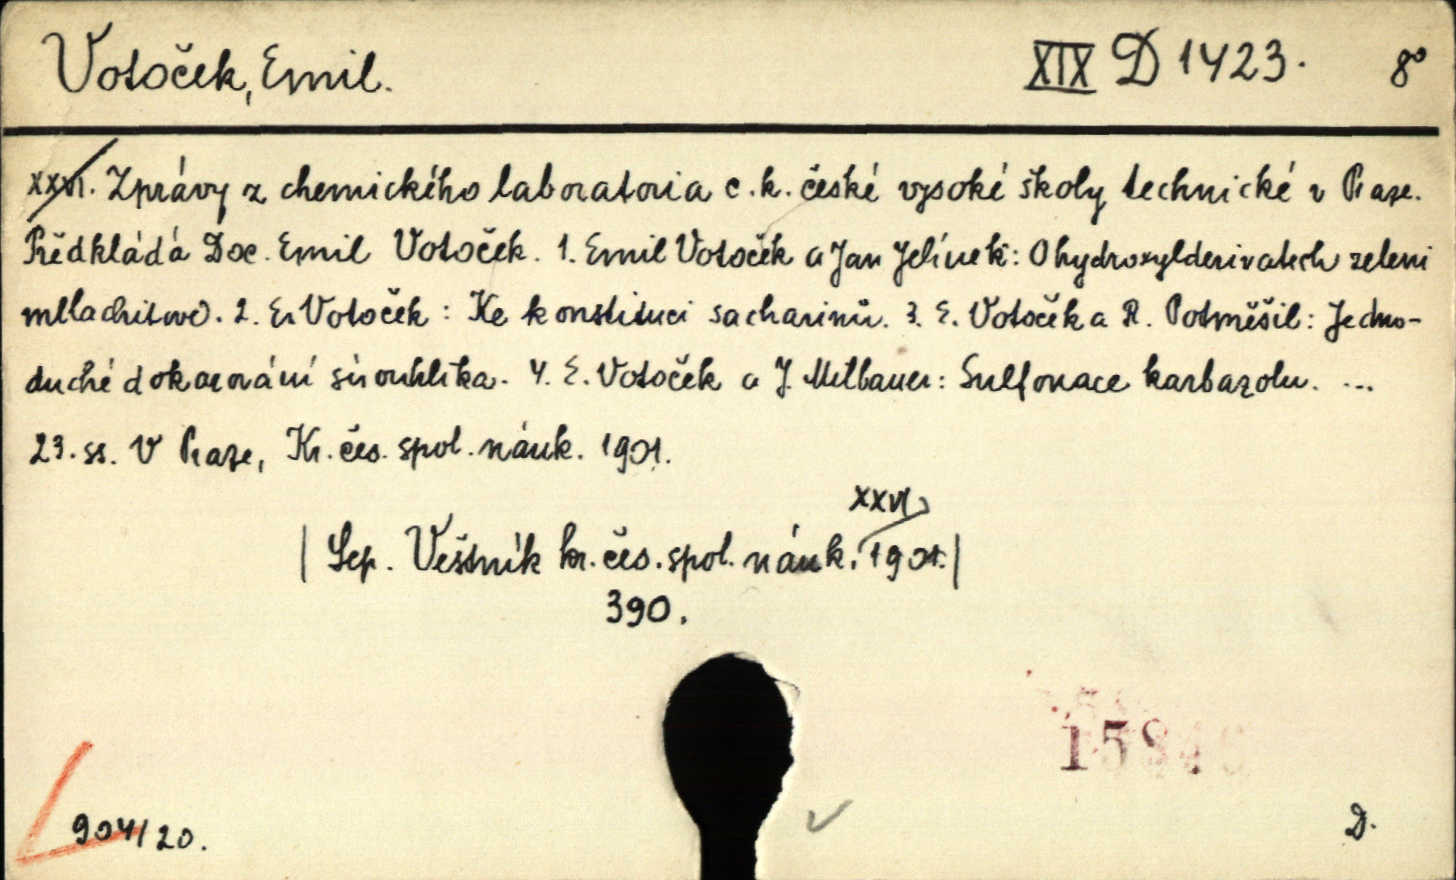 Votoček, Emil. XIX D 1423. 8°
XXVI. Zprávy z chemického laboratoria c. k. české vysoké školy technické v Praze.
Předkládá Doc. Emil Votoček. 1. Emil Votoček a Jan Jelínek: O hydroxylderivatech zeleni
malachitové. 2. Em. Votoček: Ke konstituci sacharinův. 3. E. Votoček a R. Potměšil: Jedno-
duché dokazování sírouhlíka. 4. E. Votoček a J. Milbauer: Sulfonace karbazolu. ...
23. ss. V Praze, Kr. čes. spol. náuk. 1901.
XXVI
| Sep. Věstník kr. čes. spol. náuk. 1901. |
390.
904/20. D.